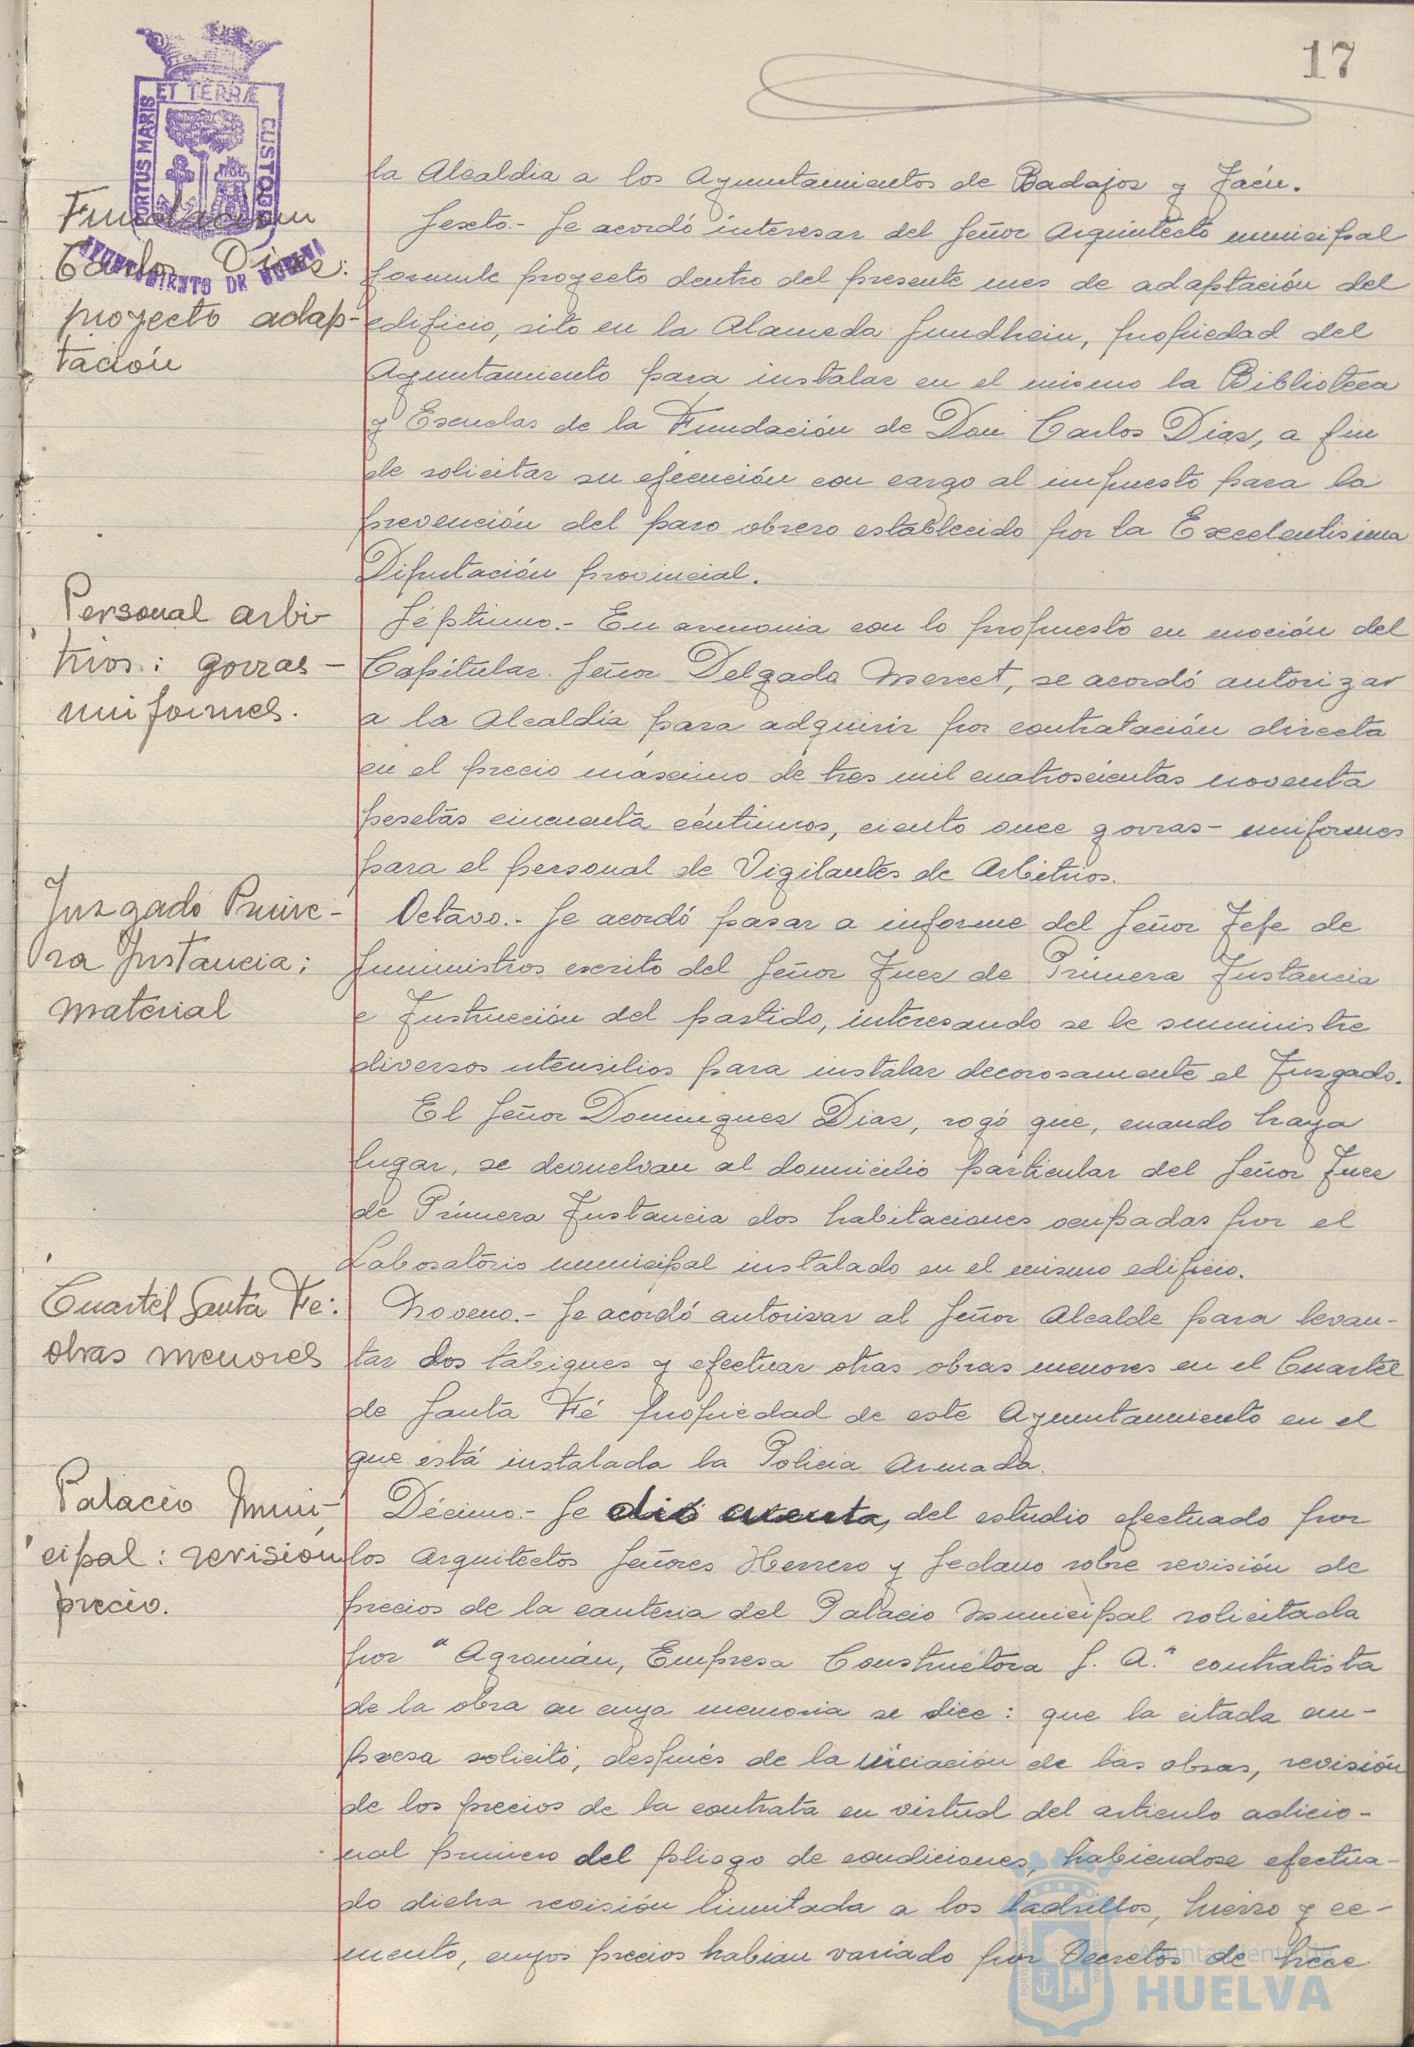 17
PORTUS MARIS ET TERRÆ CUSTODIA
AYUNTAMIENTO DE HUELVA
la Alcaldia a los Ayuntamientos de Badajoz y Jaén.
Fundacion
Carlos Diaz:
proyecto adap-
tación
Sexto.- Se acordó interesar del Señor Arquitecto municipal
formule proyecto dentro del presente mes de adaptación del
edificio, sito en la Alameda Sundhein, propiedad del
Ayuntamiento para instalar en el mismo la Biblioteca
y Escuelas de la Fundación de Don Carlos Diaz, a fin
de solicitar su ejecución con cargo al impuesto para la
prevención del paro obrero establecido por la Excelentisima
Diputación provincial.
Personal arbi-
trios: gorras-
uniformes.
Séptimo.- En armonia con lo propuesto en moción del
Capitular Señor Delgado Merect, se acordó autorizar
a la Alcaldia para adquirir por contratación directa
en el precio máximo de tres mil cuatroscientas noventa
pesetas cincuenta céntimos, ciento once gorras-uniformes
para el personal de Vigilantes de Arbitrios.
Juzgado Prime-
ra Instancia;
material
Octavo.- Se acordó pasar a informe del Señor Jefe de
Suministros escrito del Señor Juez de Primera Instancia
e Instrucción del partido, interesando se le suministre
diversos utensilios para instalar decorosamente el Juzgado.
El Señor Dominguez Diaz, rogó que, cuando haya
lugar, se devuelvan al domicilio particular del Señor Juez
de Primera Instancia dos habitaciones ocupadas por el
Laboratorio municipal instalado en el mismo edificio.
Cuartel Santa Fe:
obras menores
Noveno.- Se acordó autorizar al Señor Alcalde para levan-
tar dos tabiques y efectuar otras obras menores en el Cuartel
de Santa Fé propiedad de este Ayuntamiento en el
que está instalada la Policia Armada.
Palacio Muni-
cipal: revisión
precio.
Décimo.- Se dió cuenta, del estudio efectuado por
los Arquitectos Señores Herrero y Sedano sobre revisión de
precios de la canteria del Palacio Municipal solicitada
por "Agromán, Empresa Constructora S. A." contratista
de la obra en cuya memoria se dice: que la citada em-
presa solicitó, después de la iniciación de las obras, revisión
de los precios de la contrata en virtud del articulo adicio-
nal primero del pliego de condiciones, habiendose efectua-
do dicha revisión limitada a los ladrillos, hierro y ce-
mento, cuyos precios habian variado por Decretos de trece
Ayuntamiento de
HUELVA